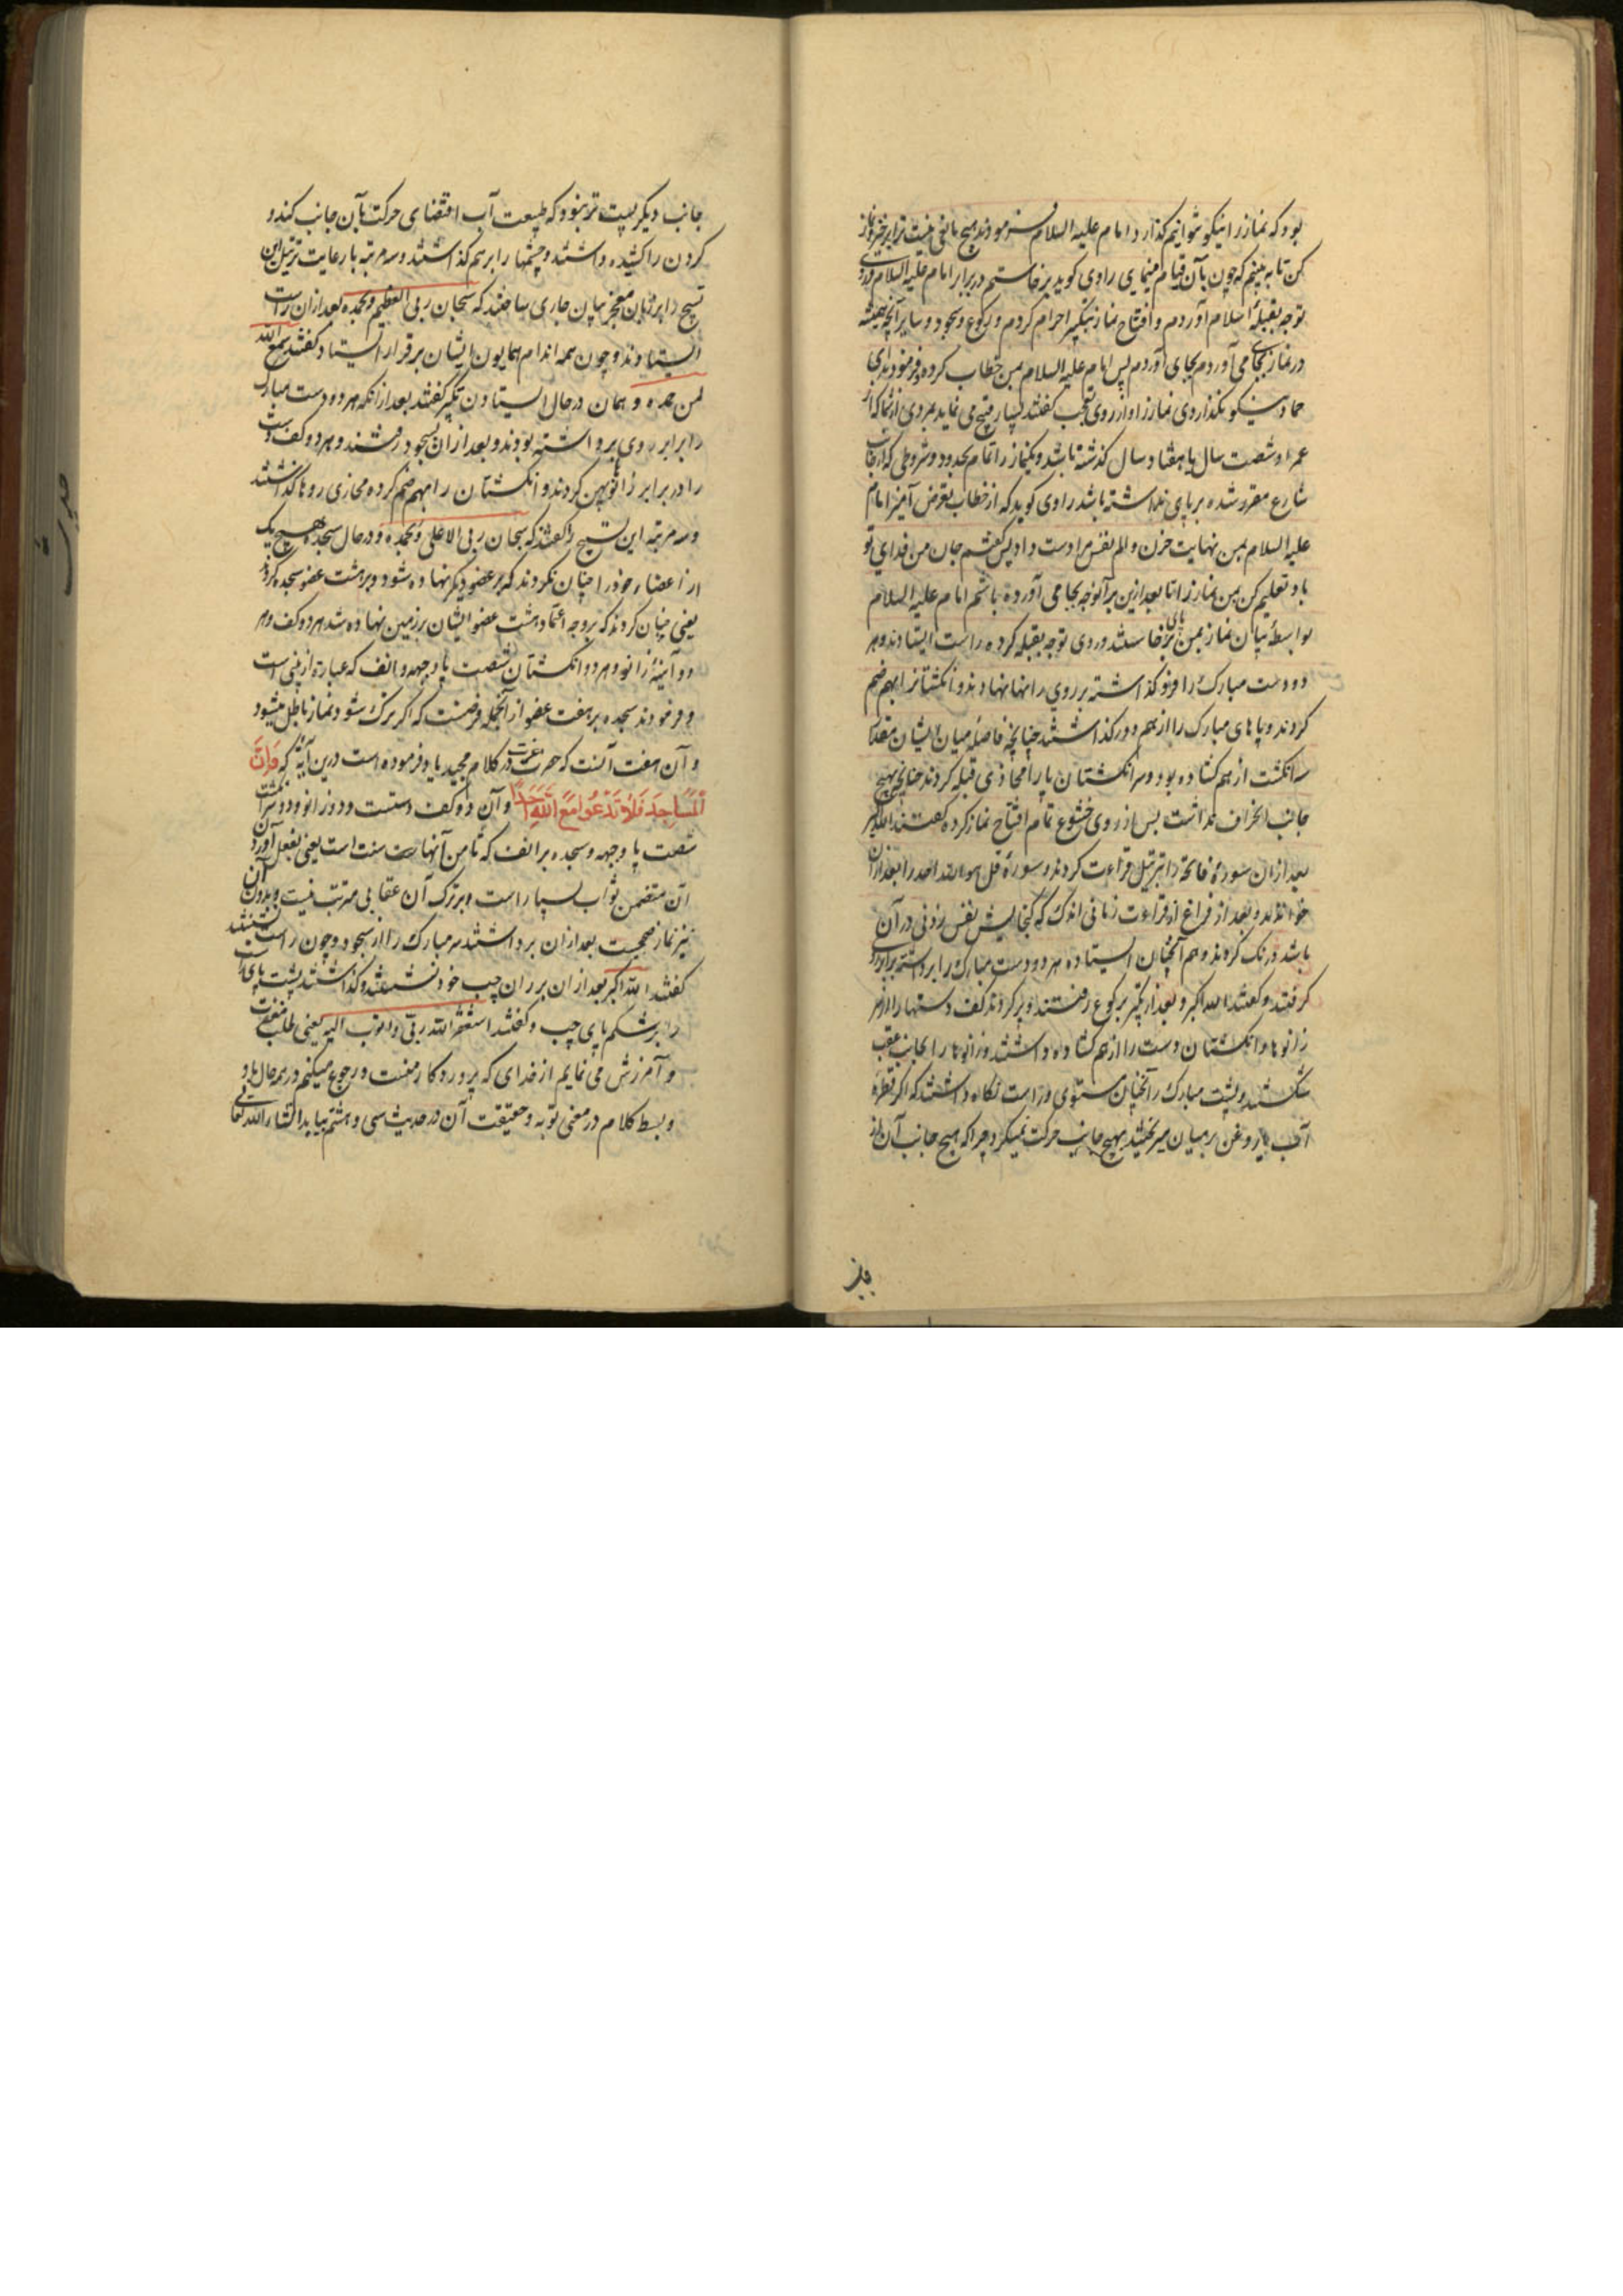 بود که نماز را نیکو توانیم گذارد امام علیه السلام فرمودند هیچ مانعی نیست ترا برخیز و نماز
کن تا به بینم که چون بآن قیام مینمایی راوی کوید برخاستم در برابر امام علیه السلام و روی
توجه بقبلهٔ اسلام آوردم و افتتاح نماز بتکبیر احرام کردم و رکوع و سجود و سایر آنچه همیشه
در نماز بجای می آوردم بجای آوردم پس امام علیه السلام بمن خطاب کرده و فرمودند ای
حماد نیکو نکذاردی نماز را و از روی تعجب کفتند بسیار قبیح می نماید بمردی از شما که از
عمر او شصت سال یا هفتاد سال کذشته باشد و یکنماز را تمام بحدود و شروطی که از جانب
شارع مقرر شده بر پای نداشته باشد راوی کوید که از خطاب تعرض آمیز امام
علیه السلام بمن نهایت حزن و الم نفس مرا دست داد پس کفتم جان من فدای تو
باد تعلیم کن بمن نماز را تا بعد ازین بر آنوجه بجا می آورده باشم امام علیه السلام
بواسطهٔ بیان نماز بمن بر پای خاستند و روی توجه بقبله کرده راست ایستادند و هر
دو دست مبارک را فرو کذاشته بر روی رانها نهادند و انکشتانرا بهم ضم
کردند و پاهای مبارک را از هم دور کذاشتند چنانچه فاصله میان ایشان مقدار
سه انکشت از هم کشاده بود و سر انکشتان پا را محاذی قبله کردند چنانچه بهیچ
جانب انحراف نداشت پس از روی خشوع تمام افتتاح نماز کرده کفتند الله اکبر
بعد ازان سورهٔ فاتحه را بترتیل قراءت کردند و سورهٔ قل هو الله احد را بعد ازان
خواندند و بعد از فراغ از قراءت زمانی اندک که کنجایش نفس زدنی در آن
باشد درنک کردند و هم آنچنان ایستاده هر دو دست مبارک را برداشته برابر روی
کرفتند و کفتند الله اکبر و بعد از تکبیر برکوع رفتند و پر کردند کف دستها را از هر
زانوها و انکشتان دست را از هم کشاده داشتند و زانوها را بجانب عقب
شکستند و پشت مبارک را آنچنان مستوی و راست نکاه داشتند که اکر قطرهٔ
آب یا روغن بر میان میریختند بهیچ جانب حرکت نمیکرد چرا که هیچ جانب آن از
جانب دیکر پست تر نبود که طبیعت آب اقتضای حرکت بآن جانب کند و
کردن را کشیده داشتند و چشمها را بر هم کذاشتند و سه مرتبه با رعایت ترتیل این
تسبیح را بر زبان معجز بیان جاری ساختند که سبحان ربی العظیم و بحمده بعد ازان راست
ایستادند و چون همه اندام همایون ایشان برقرار ایستاد کفتند سمع الله
لمن حمده و همان در حال ایستادن تکبیر کفتند بعد ازانکه هر دو دست مبارک
را برابر روی برداشته بودند و بعد ازان بسجود رفتند و هر دو کف دست
را در برابر زانو پهن کردند و انکشتان را بهم ضم کرده محاذی روها کذاشتند
و سه مرتبه این تسبیح را کفتند که سبحان ربی الاعلی و بحمده و در حال سجده هیچ یک
از اعضاء خود را چنان نکردند که بر عضو دیکر نهاده شود و بر هشت عضو سجده کردند
یعنی چنان کردند که بر وجه اعتماد هشت عضو ایشان بر زمین نهاده شد هر دو کف و هر
دو آینهٔ زانو و هر دو انکشتان شصت پا و جبهه و انف که عبارة از بینی است
و فرمودند سجده بر هفت عضو از آنجمله فرضست که اکر ترک شود نماز باطل میشود
و آن هفت آنست که حضرت عزت در کلام مجید یاد فرموده است درین آیهٔ که وَاَنَّ
الْمَسَاجِدَ فَلَا تَدْعُوا مَعَ اللّٰهِ اَحَدًا و آن دو کف دستست و دو زانو و دو سر انکشت
شصت پا و جبهه و سجده بر انف که ثامن آنهاست سنت است یعنی بفعل آوردن
آن متضمن ثواب بسیار است و بر ترک آن عقابی مترتب نیست و بدون آن
نیز نماز صحیحست بعد ازان برداشتند سر مبارک را از سجود و چون راست نشستند
کفتند الله اکبر بعد ازان بر ران چپ خود نشستند و کذاشتند پشت پای راست
را بر شکم پای چپ و کفتند استغفر الله ربی و اتوب الیه یعنی طلب مغفرت
و آمرزش می نمایم از خدای که پروردکار منست و رجوع میکنم در هر حال باو
و بسط کلام در معنی توبه و حقیقت آن در حدیث سی و هشتم بیاید انشاء الله تعالی